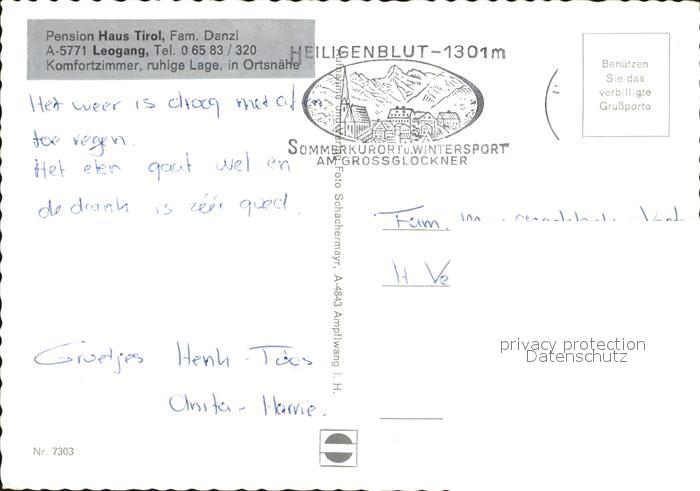 Pension Haus Tirol, Fam. Danzl
A-5771 Leogang, Tel. 0 65 83 / 320
Komfortzimmer, ruhige Lage, in Ortsnähe
HEILIGENBLUT-1301m
SOMMERKURORT u. WINTERSPORT
AM GROSSGLOCKNER
Benützen
Sie das
verbilligte
Grußporto
Het weer is droog met af en
toe regen.
Het eten gaat wel en
de drank is véér goed.
Groetjes Henk - Toos
Anita - Harrie.
Foto Schachermayr, A-4843 Ampflwang i. H.
Fam.
H. Ve
privacy protection
Datenschutz
Nr. 7303